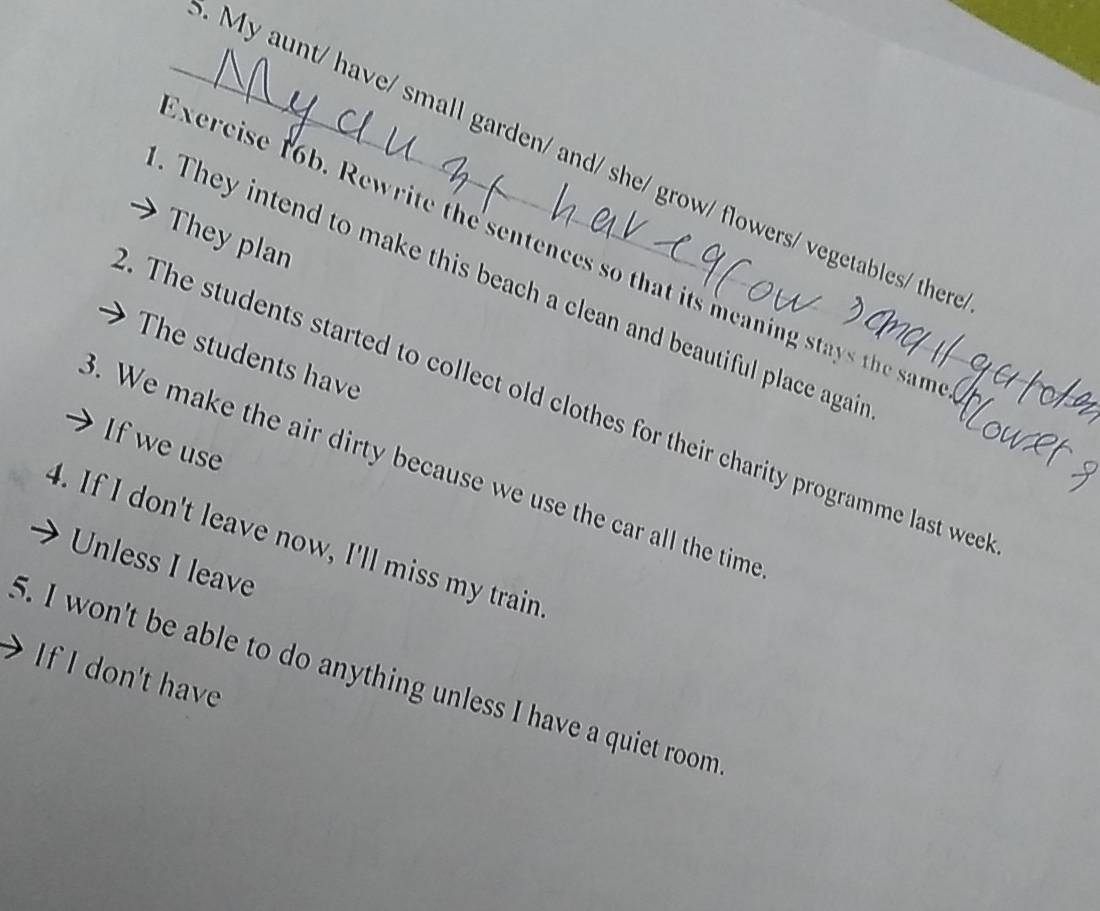 5. My aunt/ have/ small garden/ and/ she/ grow/ flowers/ vegetables/ there/.
My aunt have grow small garden
flowers
Exercise 16b. Rewrite the sentences so that its meaning stays the same.
1. They intend to make this beach a clean and beautiful place again.
→ They plan
2. The students started to collect old clothes for their charity programme last week.
→ The students have
3. We make the air dirty because we use the car all the time.
→ If we use
4. If I don't leave now, I'll miss my train.
→ Unless I leave
5. I won't be able to do anything unless I have a quiet room.
→ If I don't have